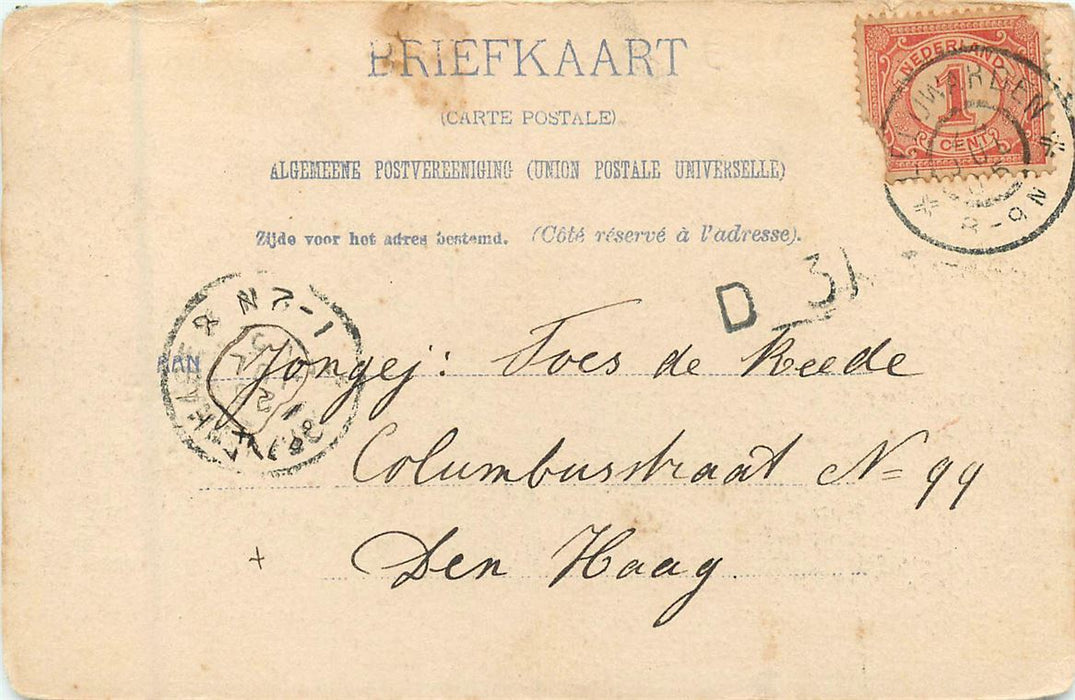 BRIEFKAART
(CARTE POSTALE)
ALGEMEENE POSTVEREENIGING (UNION POSTALE UNIVERSELLE)
Zijde voor het adres bestemd. (Côté réservé à l'adresse).
NEDERLAND
1
CENT
LEEUWARDEN
8-9N
D 31
1-2N
AAN Jongej: Toes de Reede
Columbusstraat No 99
Den Haag.